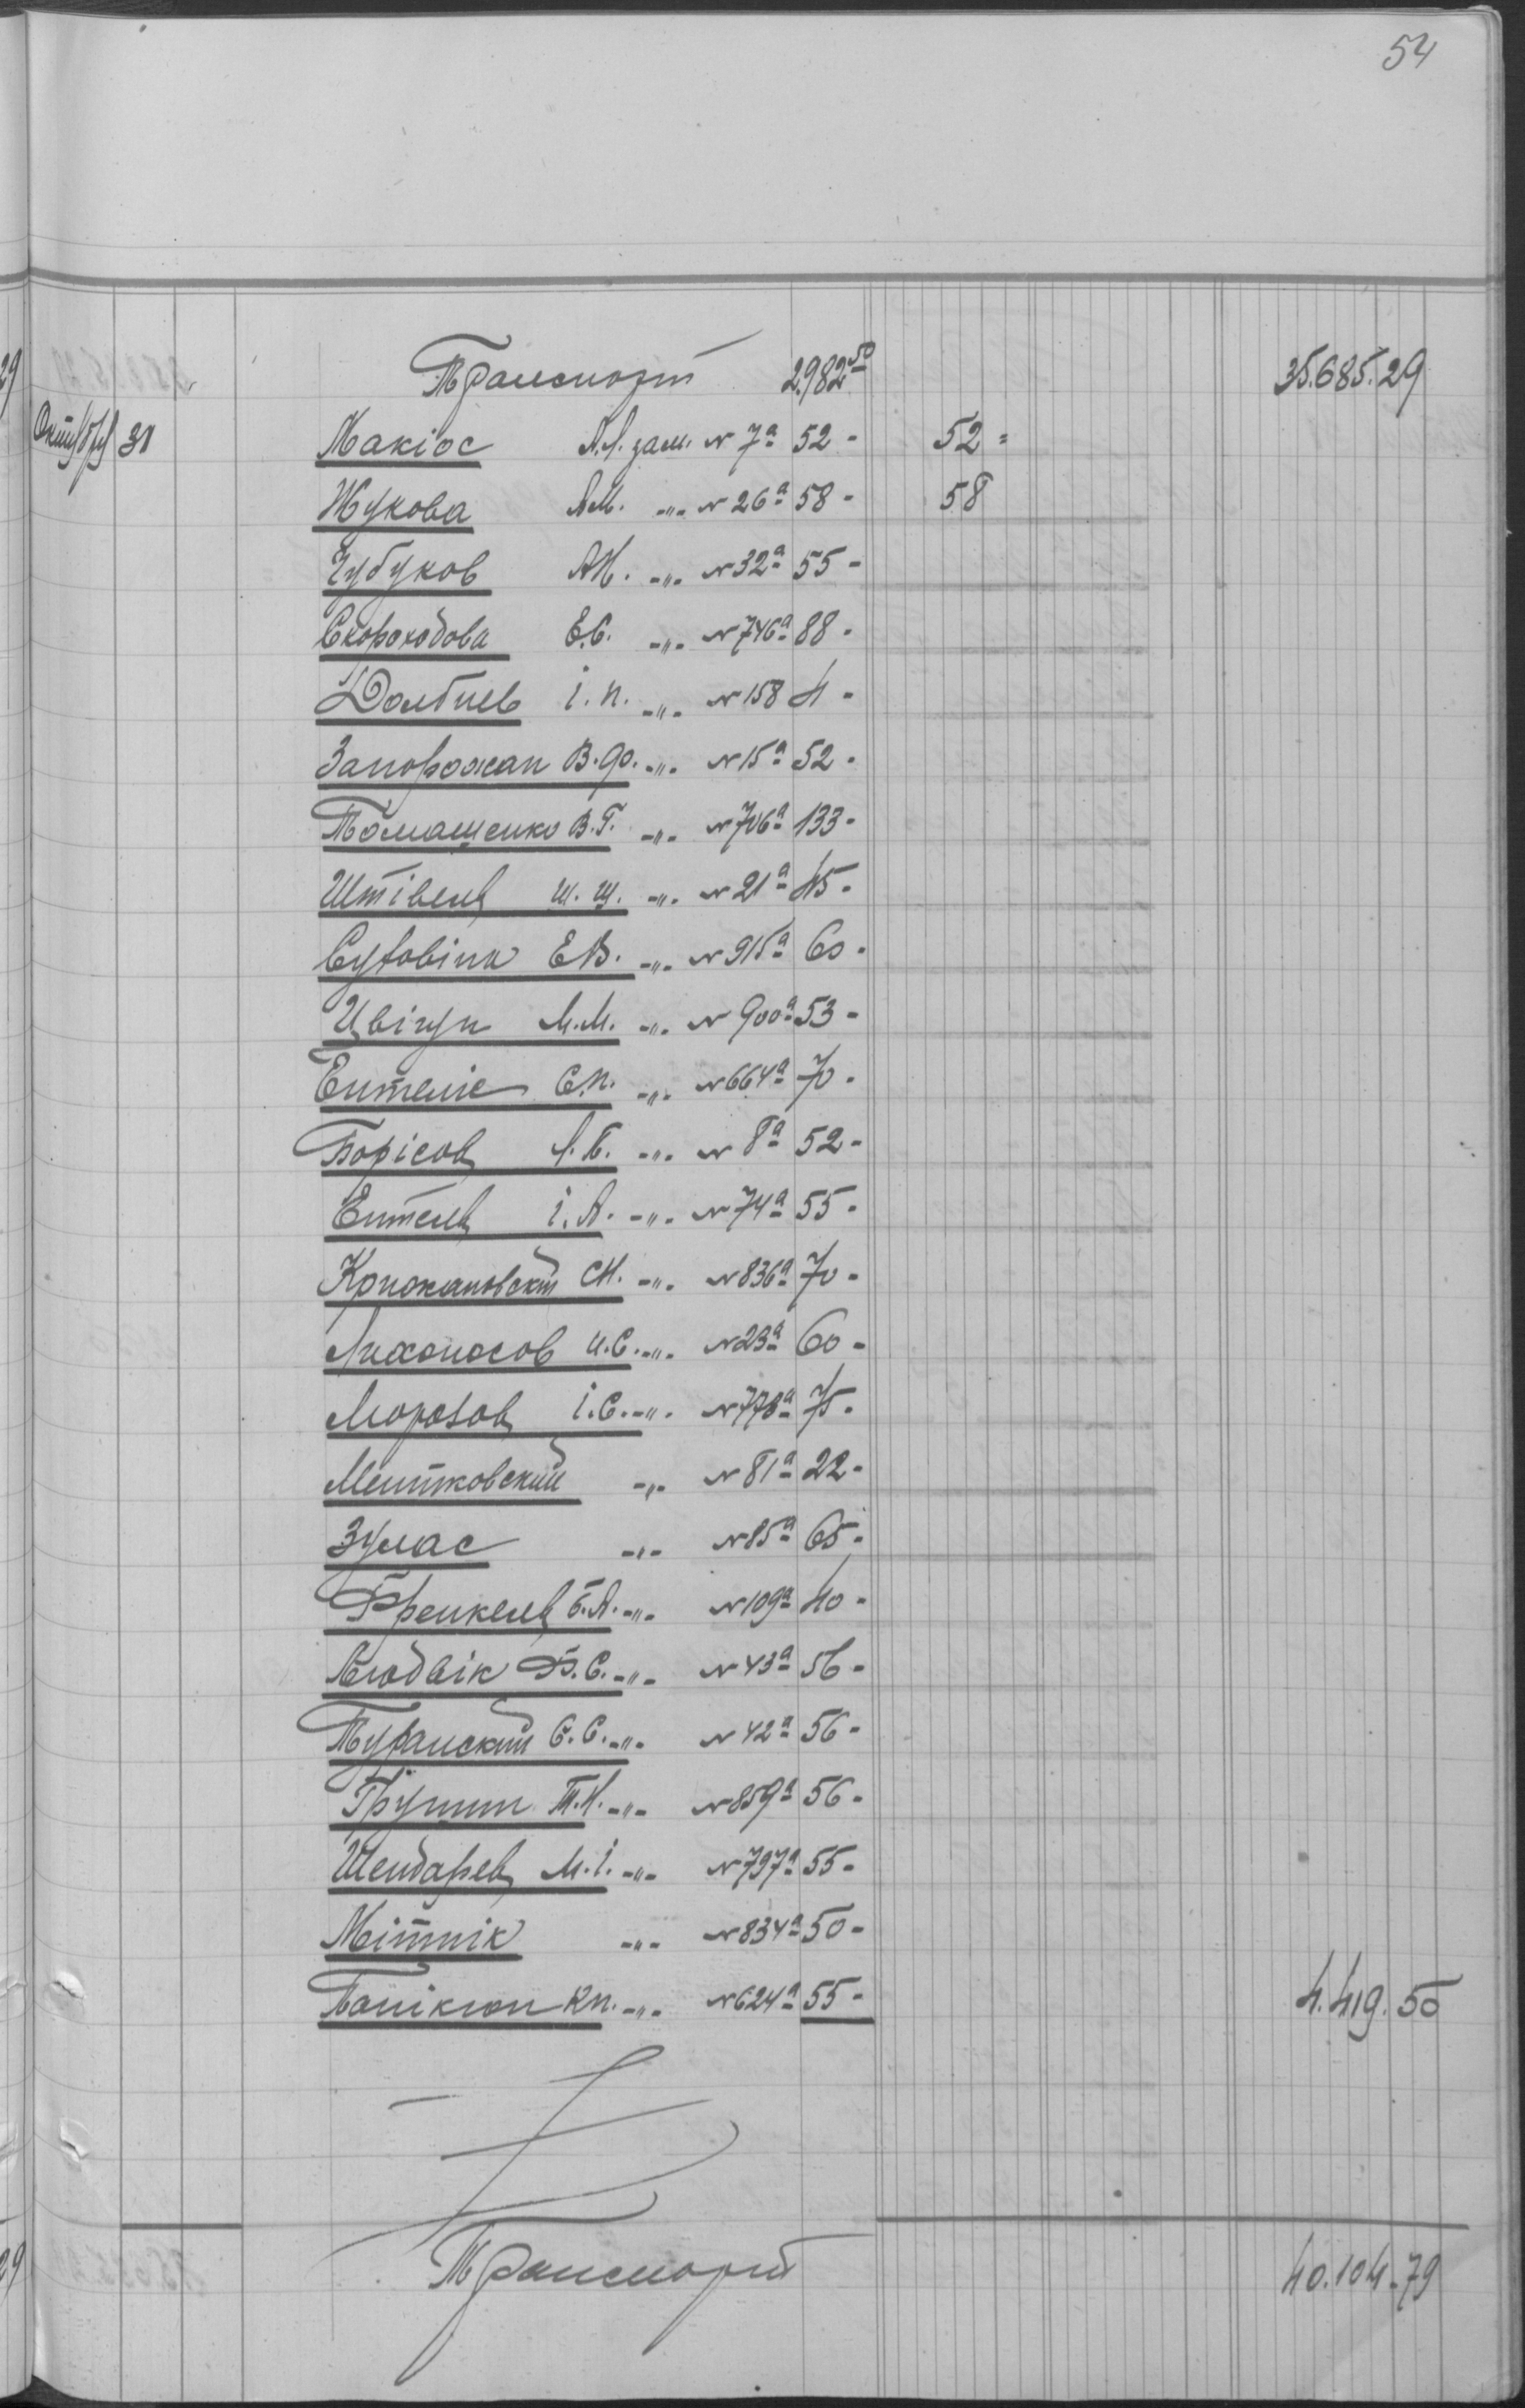 54
Транспорт 2.982 50 35.685.29
Октября 31 Макіос А.Л. зам. № 7а 52 - 52 =
Жукова А.М. -"- № 26а 58 - 58
Чубуков А.Н. -"- № 32а 55 -
Скороходова Е.С. -"- № 746а 88 -
Долбиев І.П. -"- № 158 4 -
Запорожан В.Ф. -"- № 15а 52 -
Томащенко В.Г. -"- № 706а 133 -
Штівель Ш.Ш. -"- № 21а 45 -
Суговіна Е.В. -"- № 915а 60 -
Цвігун М.М. -"- № 900а 53 -
Ентеліс С.П. -"- № 664а 70 -
Борісов Л.Б. -"- № 8а 52 -
Ентель І.А. -"- № 74а 55 -
Крижановский С.Н. -"- № 836а 70 -
Лихоносов И.С. -"- № 23а 60 -
Морозов І.С. -"- № 778а 75 -
Ментковский -"- № 81а 22 -
Зумас -"- № 85а 65 -
Френкель Б.А. -"- № 109а 40 -
Людвік Ф.С. -"- № 43а 56 -
Туранский С.С. -"- № 42а 56 -
Грушин Т.Н. -"- № 859а 56 -
Шендарев М.І. -"- № 797а 55 -
Мітнік -"- № 834а 50 -
К.П. -"- № 624а 55 - 4.419.50
Транспорт 40.104.79